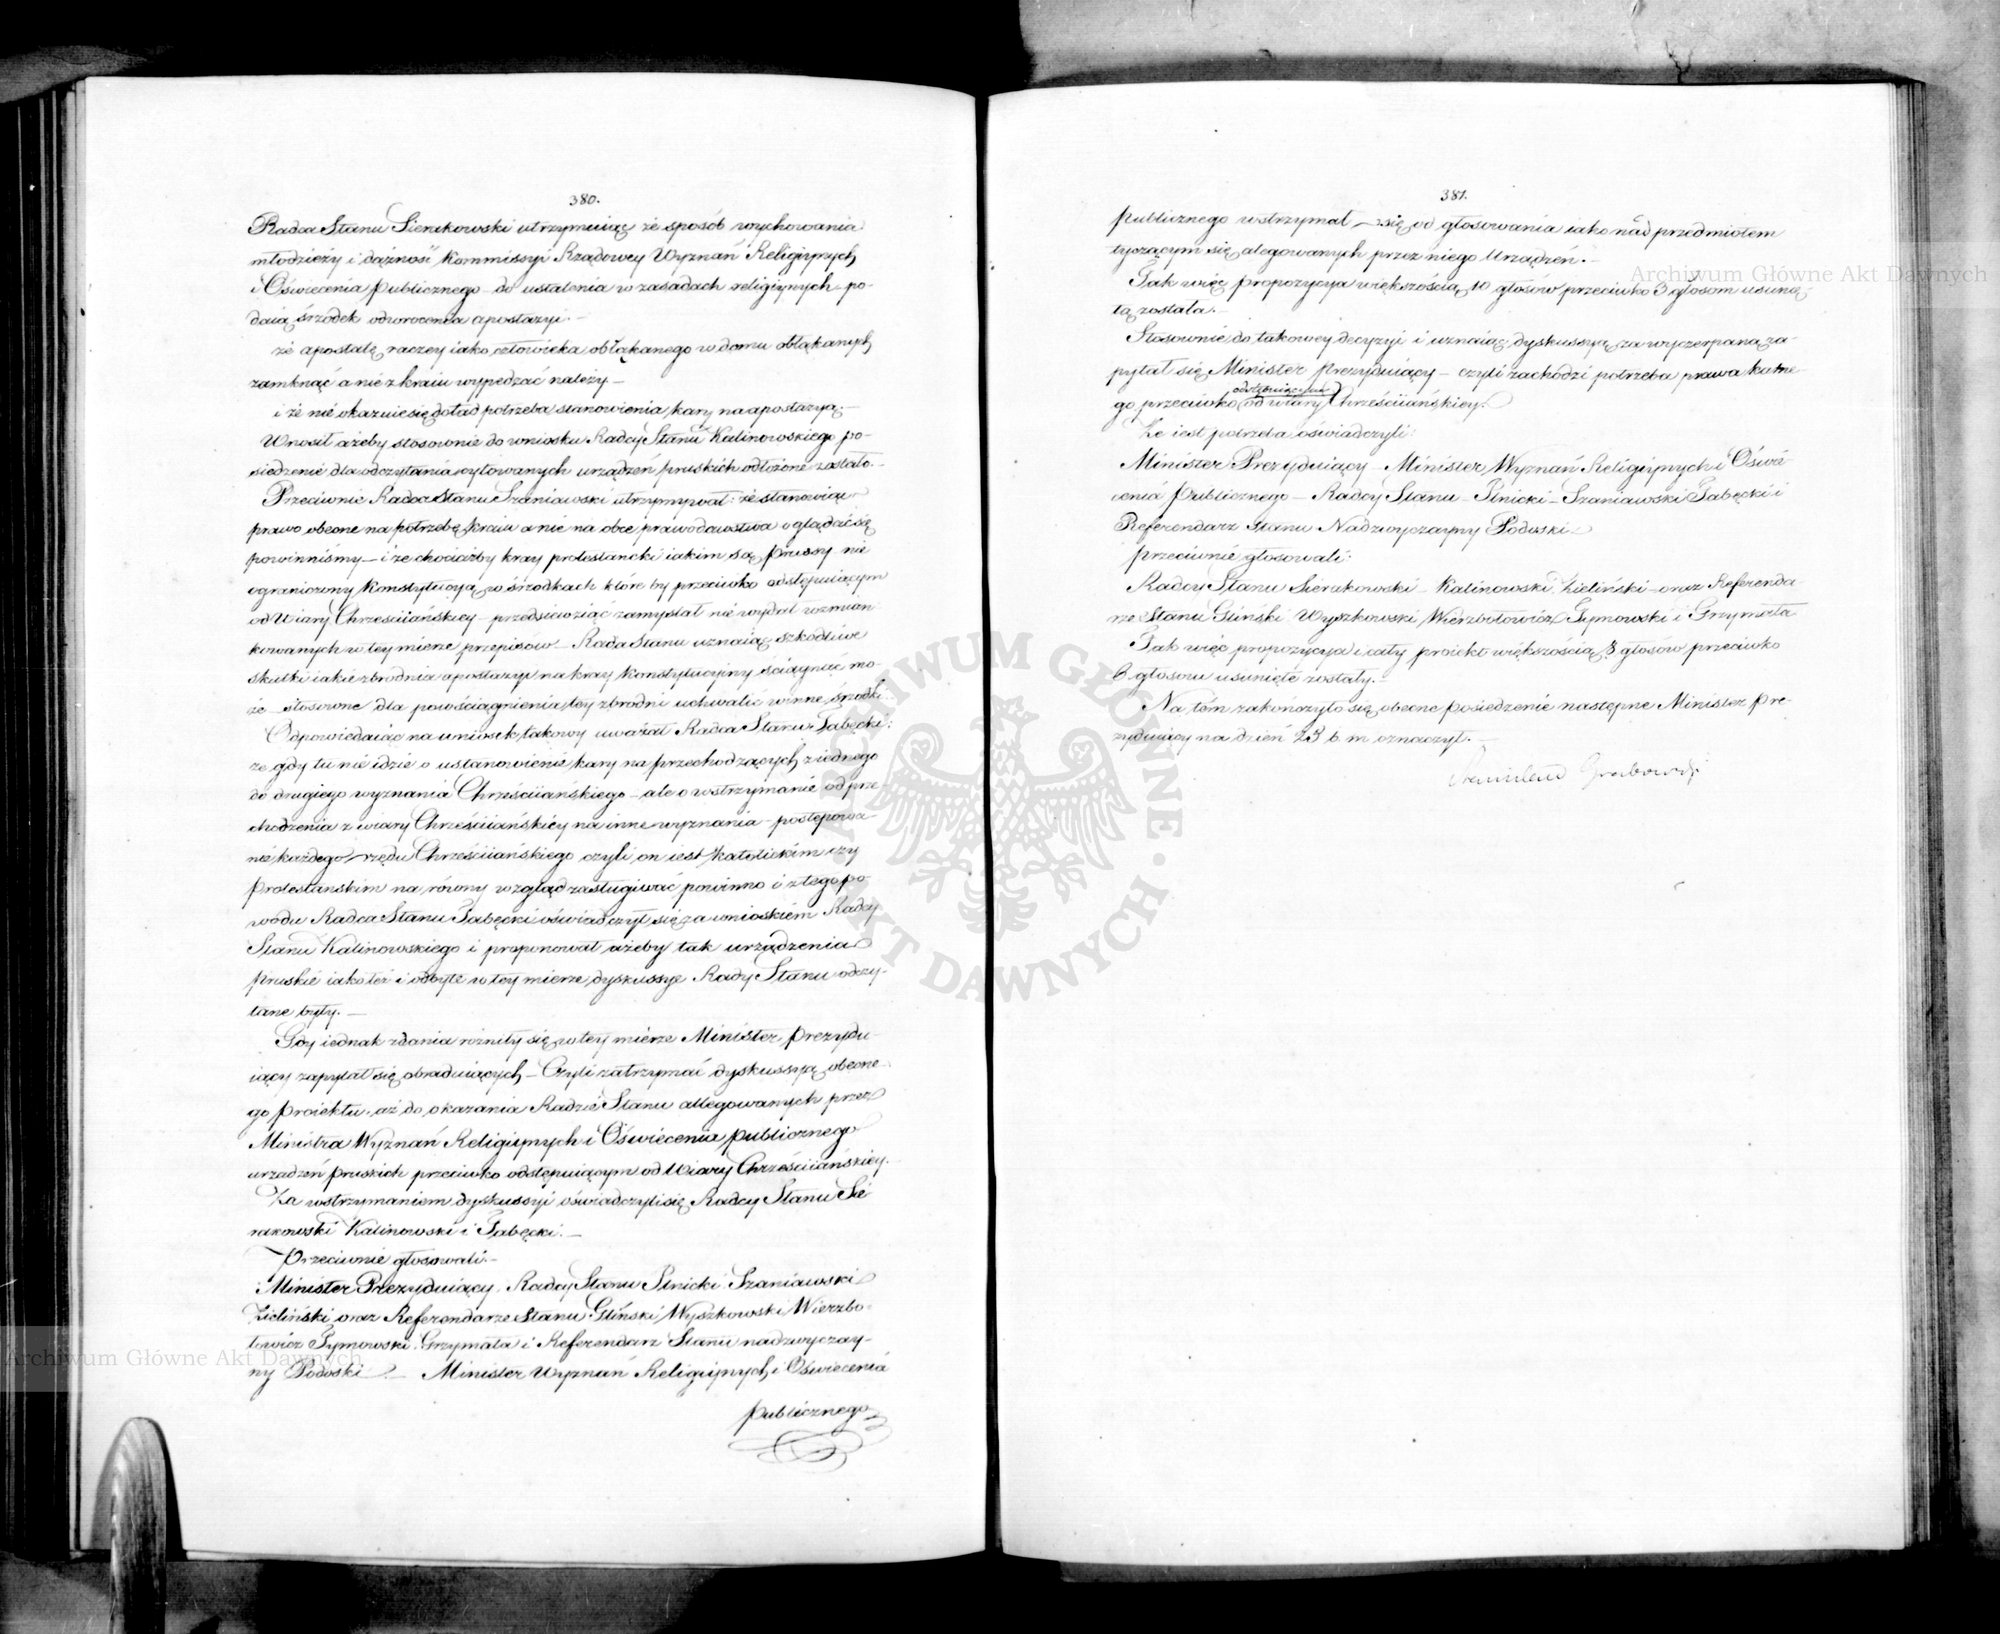 380.
Radca Stanu Sierakowski utrzymuiąc że sposób wychowania
młodzieży i dążność Kommissyi Rządowey Wyznań Religiynych
i Oświecenia Publicznego do ustalenia w zasadach religiynych po-
daią śrzodek odwrocenia apostazyi. —
że apostatę raczey iako człowieka obłąkanego w domu obłąkanych
zamknąć a nie z kraiu wypędzać należy. —
i że nie okazuie się dotąd potrzeba stanowienia kary na apostazyą. —
Wnosił ażeby stosownie do wniosku Radcy Stanu Kalinowskiego po-
siedzenie dla odczytania cytowanych urządzeń pruskich odłożone zostało. —
Przeciwnie Radca Stanu Szaniawski utrzymywał: że stanowiąc
prawo obecne na potrzebę kraiu a nie na obce prawodawstwa oglądać się
powinniśmy — i że chociażby kray protestancki iakim są Prussy nie
ograniczony Konstytucyą w śrzodkach które by przeciwko odstępuiącym
od Wiary Chrześciiańskiey przedsiewziąć zamyslał nie wydał wzmian
kowanych w tey mierze przepisów — Rada Stanu uznaiąc szkodliwe
skutki iakie zbrodnia apostazyi na kray konstytucyiny ściągnąć mo-
że — stosowne dla powściągnienia tey zbrodni uchwalić winne śrzodki.
Odpowiedaiąc na wniosek takowy uważał Radca Stanu Łabęcki:
że gdy tu nie idzie o ustanowienie kary na przechodzących z iednego
do drugiego wyznania Chrześciiańskiego — ale o wstrzymanie od prze-
chodzenia z wiary Chrześciiańskiey na inne wyznania — postępowa-
nie każdego rzędu Chrześciiańskiego czyli on iest Katolickim czy
Protestanskim na równy wzgląd zasługiwać powinno i z tego po-
wodu Radca Stanu Łabęcki oświadczył się za wnioskiem Radcy
Stanu Kalinowskiego i proponował ażeby tak urządzenia
Pruskie iako też i odbyte w tey mierze dyskussye Rady Stanu odczy-
tane były. —
Gdy iednak zdania rózniły się w tey mierze Minister Prezydu-
iący zapytał się obraduiących — Czyli zatrzymać dyskussyą obecne-
go Proiektu aż do okazania Radzie Stanu allegowanych przez
Ministra Wyznań Religiynych i Oświecenia Publicznego
urządzeń pruskich przeciwko odstępuiącym od Wiary Chrześciiańskiey.
Za wstrzymaniem dyskussyi oświadczyli się Radcy Stanu Sie
rakowski Kalinowski i Łabęcki. —
Przeciwnie głosowali: —
Minister Prezyduiący, Radcy Stanu Plnicki Szaniawski
Zieliński oraz Referendarze Stanu Gliński Wyszkowski Wierzbo-
łowicz Tymowski Grzymała i Referendarz Stanu nadzwyczay-
ny Podoski. — Minister Wyznań Religiynych i Oświecenia
Publicznego
381.
Publicznego wstrzymał się od głosowania iako nad przedmiotem
tyczącym się alegowanych przez niego Urządzeń. —
Tak więc propozycya większością 10 głosów przeciwko 3 głosom usunię-
tą została. —
Stosownie do takowey decyzyi i uznaiąc dyskussyą za wyczerpaną za-
pytał się Minister Prezyduiący — czyli zachodzi potrzeba prawa karne-
odstępuiącym
go przeciwko od wiary Chrześciiańskiey.
Że iest potrzeba oświadczyli:
Minister Prezyduiący — Minister Wyznań Religiynych i Oświe-
cenia Publicznego — Radcy Stanu — Plnicki — Szaniawski Łabęcki i
Referendarz Stanu Nadzwyczayny Podoski —
Przeciwnie głosowali:
Radcy Stanu Sierakowski — Kalinowski, Zieliński — oraz Referenda-
rze Stanu Gliński Wyszkowski Wierzbołowicz Tymowski i Grzymała
Tak więc propozycya i cały proiekt większością 8 głosów przeciwko
6 głosom usunięte zostały. —
Na tém zakończyło się obecne posiedzenie następne Minister Pre-
zyduiący na dzień 23 b. m oznaczył. —
Stanisław Grabowski
Archiwum Główne Akt Dawnych
Archiwum Główne Akt Dawnych
ARCHIWUM GŁÓWNE AKT DAWNYCH